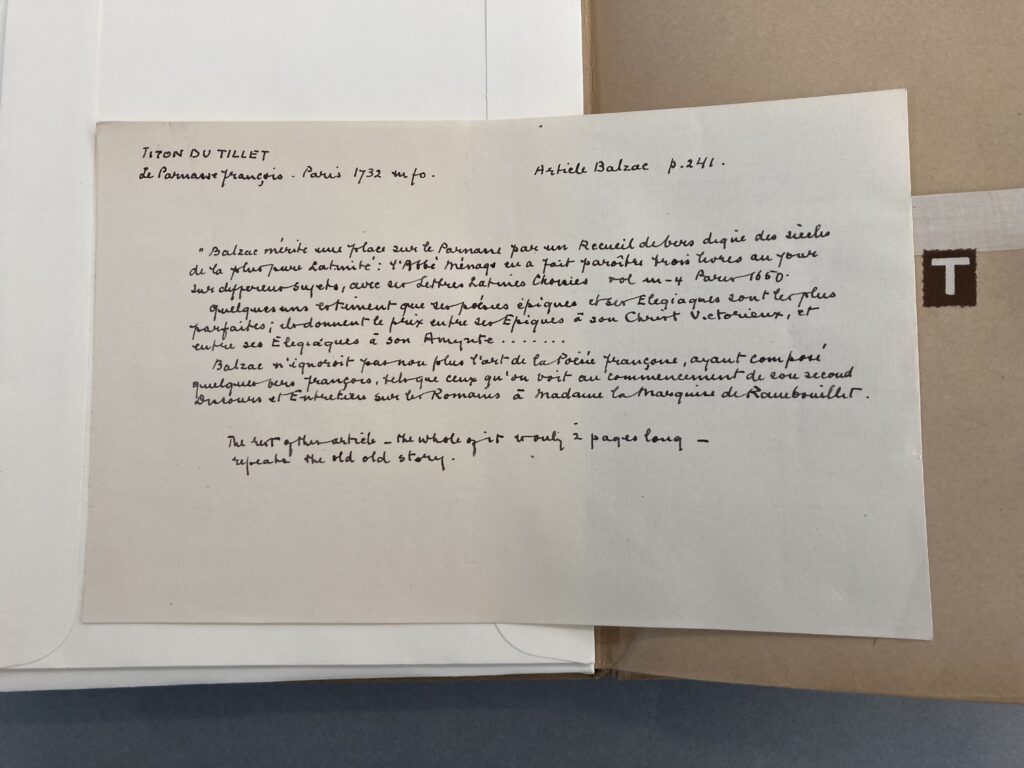 TITON DU TILLET
Le Parnasse françois. Paris 1732 in fo.
Article Balzac p. 241.
" Balzac mérite une place sur le Parnasse par un Recueil de vers digne des siècles
de la plus pure Latinité : l'Abbé Ménage en a fait paroître trois livres au jour
sur differens sujets, avec ses Lettres Latines Choisies vol in-4 Paris 1650.
Quelques uns estiment que ses poésies épiques et ses Elegiaques sont les plus
parfaites ; ils donnent le prix entre ses Epiques à son Christ Victorieux, et
entre ses Elegiaques à son Amynte .......
Balzac n'ignoroit pas non plus l'art de la Poësie françoise, ayant composé
quelques vers françois, tels que ceux qu'on voit au commencement de son second
Discours et Entretien sur les Romains à Madame la Marquise de Rambouillet.
The rest of this article – the whole of it is only 2 pages long –
repeats the old old story.
T